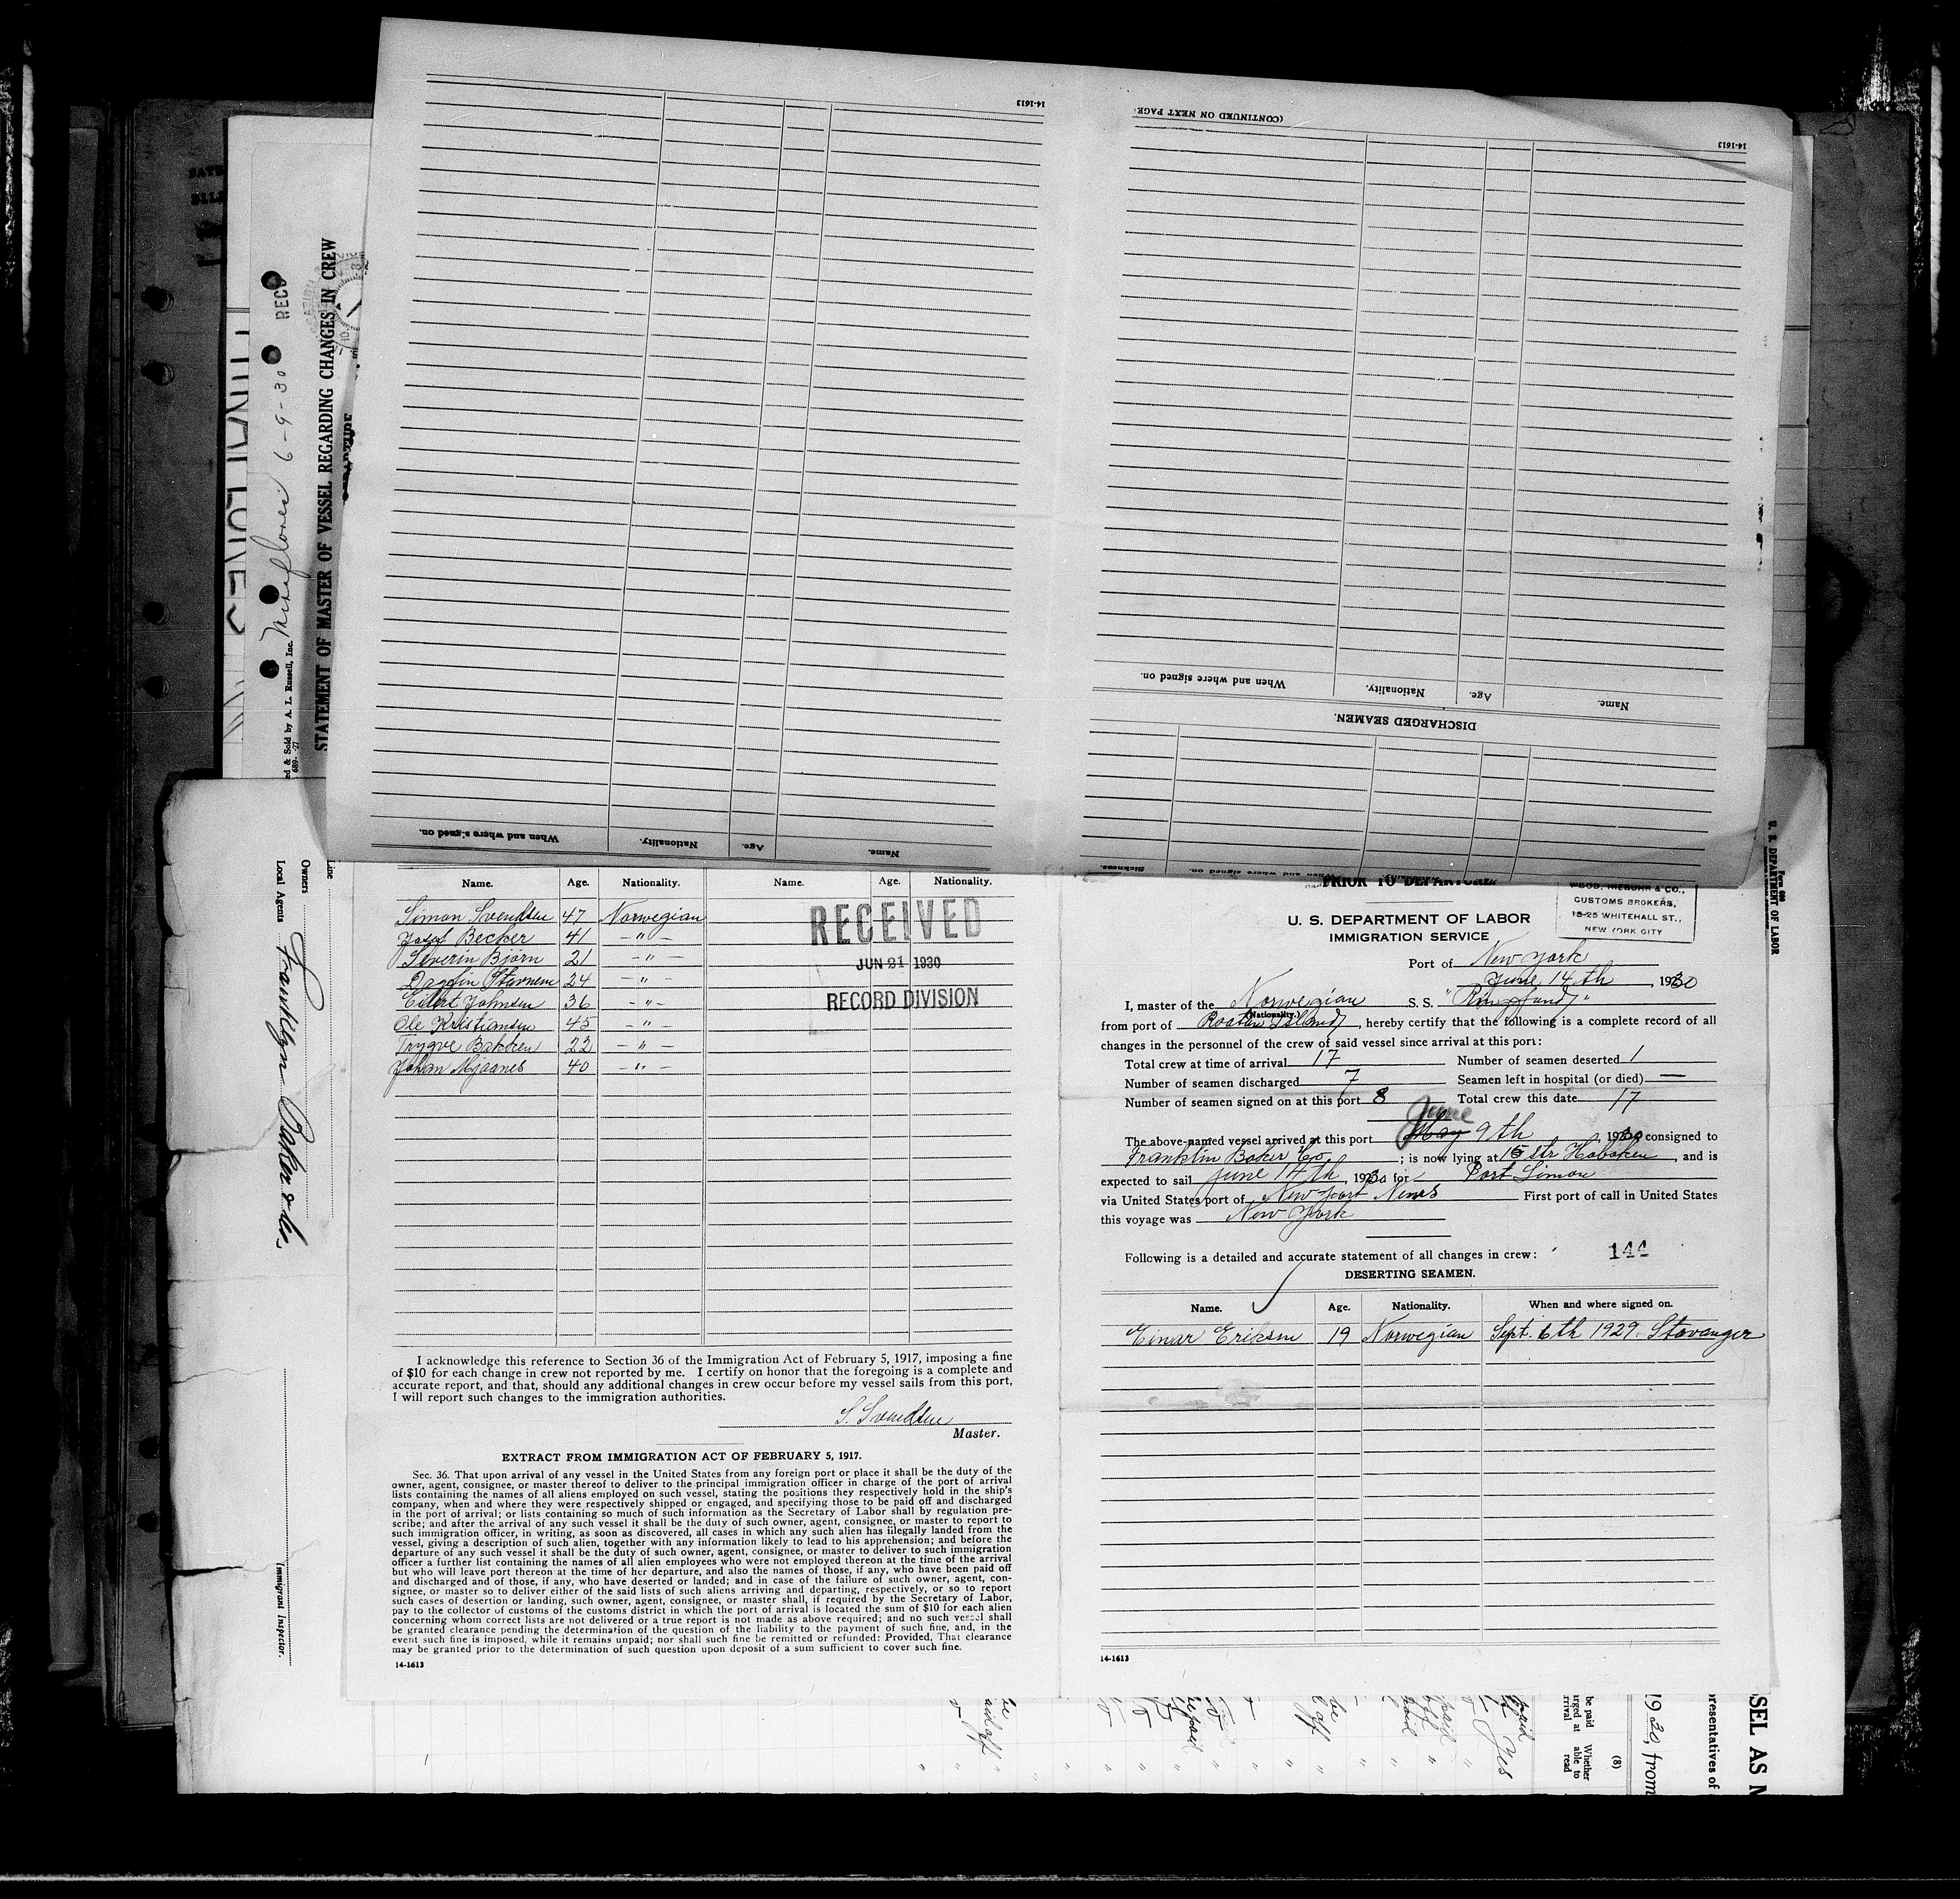 14-1613
(CONTINUED ON NEXT PAGE
14-1613
When and where signed on.
Nationality.
Age.
Name.
DISCHARGED SEAMEN.
When and where signed on.
Nationality.
Age.
Name.
Sickness.
RECD
STATEMENT OF MASTER OF VESSEL REGARDING CHANGES IN CREW
Miraflores 6-9-30
ed & Sold by A. L. Russell, Inc.
Line
Owners
Local Agents Franklyn Baker & Co.
Immigrant Inspector.
Name. Age. Nationality. Name. Age. Nationality.
Simon Svendsen 47 Norwegian
Josef Becker 41 — " —
Severin Bjørn 21 — " —
Dagfin Stavnem 24 — "
Eilert Johnsen 36 — " —
Ole Kristiansen 45 — " —
Trygve Bakken 22 — " —
Johan Mjaanes 40 — " —
RECEIVED
JUN 21 1930
RECORD DIVISION
I acknowledge this reference to Section 36 of the Immigration Act of February 5, 1917, imposing a fine
of $10 for each change in crew not reported by me. I certify on honor that the foregoing is a complete and
accurate report, and that, should any additional changes in crew occur before my vessel sails from this port,
I will report such changes to the immigration authorities.
S. Svendsen
Master.
EXTRACT FROM IMMIGRATION ACT OF FEBRUARY 5, 1917.
Sec. 36. That upon arrival of any vessel in the United States from any foreign port or place it shall be the duty of the
owner, agent, consignee, or master thereof to deliver to the principal immigration officer in charge of the port of arrival
lists containing the names of all aliens employed on such vessel, stating the positions they respectively hold in the ship's
company, when and where they were respectively shipped or engaged, and specifying those to be paid off and discharged
in the port of arrival; or lists containing so much of such information as the Secretary of Labor shall by regulation pre-
scribe; and after the arrival of any such vessel it shall be the duty of such owner, agent, consignee, or master to report to
such immigration officer, in writing, as soon as discovered, all cases in which any such alien has illegally landed from the
vessel, giving a description of such alien, together with any information likely to lead to his apprehension; and before the
departure of any such vessel it shall be the duty of such owner, agent, consignee, or master to deliver to such immigration
officer a further list containing the names of all alien employees who were not employed thereon at the time of the arrival
but who will leave port thereon at the time of her departure, and also the names of those, if any, who have been paid off
and discharged and of those, if any, who have deserted or landed; and in case of the failure of such owner, agent, con-
signee, or master so to deliver either of the said lists of such aliens arriving and departing, respectively, or so to report
such cases of desertion or landing, such owner, agent, consignee, or master shall, if required by the Secretary of Labor,
pay to the collector of customs of the customs district in which the port of arrival is located the sum of $10 for each alien
concerning whom correct lists are not delivered or a true report is not made as above required; and no such vessel shall
be granted clearance pending the determination of the question of the liability to the payment of such fine, and, in the
event such fine is imposed, while it remains unpaid; nor shall such fine be remitted or refunded: Provided, That clearance
may be granted prior to the determination of such question upon deposit of a sum sufficient to cover such fine.
14-1613
PRIOR TO DEPARTURE
WOOD, NIEBUHR & CO.,
CUSTOMS BROKERS,
15-25 WHITEHALL ST.,
NEW YORK CITY
U. S. DEPARTMENT OF LABOR
IMMIGRATION SERVICE
Port of New York
June 14th, 1930
I, master of the Norwegian S.S. "Ringfund"
(Nationality.)
from port of Roatan Island, hereby certify that the following is a complete record of all
changes in the personnel of the crew of said vessel since arrival at this port:
Total crew at time of arrival 17 Number of seamen deserted 1
Number of seamen discharged 7 Seamen left in hospital (or died) —
Number of seamen signed on at this port 8 Total crew this date 17
June
The above-named vessel arrived at this port May 9th, 1930 consigned to
Franklin Baker Co; is now lying at 15 str Hoboken, and is
expected to sail June 14th, 1930 for Port Limon
via United States port of New Port News First port of call in United States
this voyage was New York
Following is a detailed and accurate statement of all changes in crew: 144
DESERTING SEAMEN.
Name. Age. Nationality. When and where signed on.
Einar Eriksen 19 Norwegian Sept. 6th 1929. Stavanger
14-1613
Form 689
U. S. DEPARTMENT OF LABOR
SEL AS
presentatives of
1930, from
(8)
Whether
able to
read
be paid
arged at
arrival
Yes